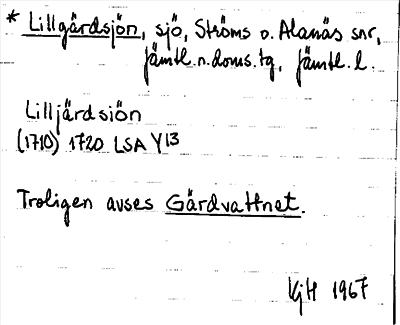 * Lillgärdsjön, sjö, Ströms o. Alanäs snr,
jämtl. n. doms. tg, jämtl. l.
Lilljärdsiön
(1710) 1720 LSA Y13
Troligen avses Gärdvattnet.
KjH 1967